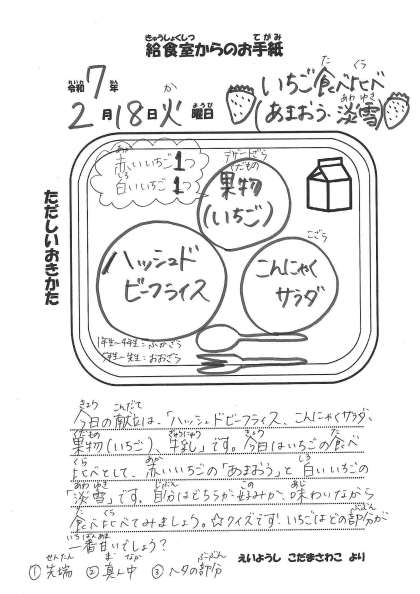 給食室からのお手紙
令和7年
2月18日火曜日
いちご食べ比べ
(あまおう・淡雪)
ただしいおきかた
赤いいちご1つ
白いいちご1つ
デザートざら
果物
(いちご)
ハッシュド
ビーフライス
こざら
こんにゃく
サラダ
1年生〜4年生:ふかざら
5年生〜先生:おおざら
今日の献立は、「ハッシュドビーフライス、こんにゃくサラダ、
果物(いちご)、牛乳」です。今日はいちごの食べ
比べとして、赤いいちごの「あまおう」と白いいちごの
「淡雪」です。自分はどちらが好みか、味わいながら
食べ比べてみましょう。☆クイズです!いちごはどの部分が
一番甘いでしょう?
①先端 ②真ん中 ③ヘタの部分
えいようし こだまさわこ より